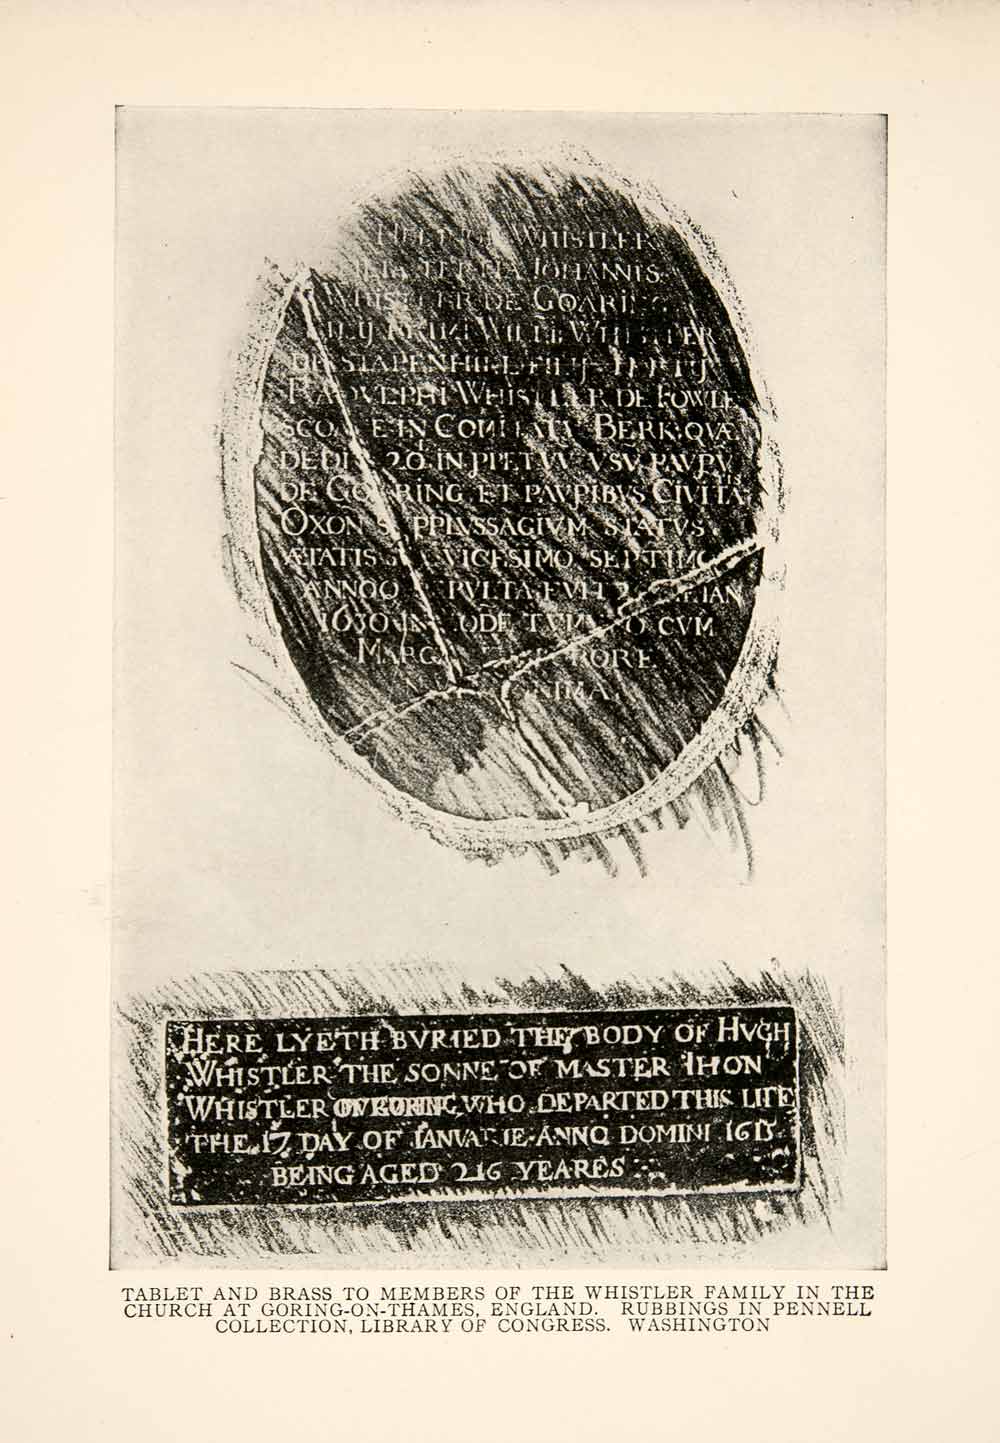 WHISTLER
IOHANNIS
WHISTLER DE GOARING
WHISTLER
DE STAPENHILL FILIJ
RADVLPHI WHISTLER DE FOWLE
IN BERK QVÆ
DEDIT 20 IN VSV PAVPV
DE GOARING ET PAVPIBVS CIVITA TIS
OXON STATVS
ÆTATIS VICESIMO SEPTIMO
ANNOQ FVIT IAN
1630 IN CVM
SORORE

HERE LYETH BVRIED THE BODY OF HVGH
WHISTLER THE SONNE OF MASTER IHON
WHISTLER OF GORING WHO DEPARTED THIS LIFE
THE 17 DAY OF IANVARIE ANNO DOMINI 1615
BEING AGED 216 YEARES
TABLET AND BRASS TO MEMBERS OF THE WHISTLER FAMILY IN THE
CHURCH AT GORING-ON-THAMES, ENGLAND. RUBBINGS IN PENNELL
COLLECTION, LIBRARY OF CONGRESS. WASHINGTON